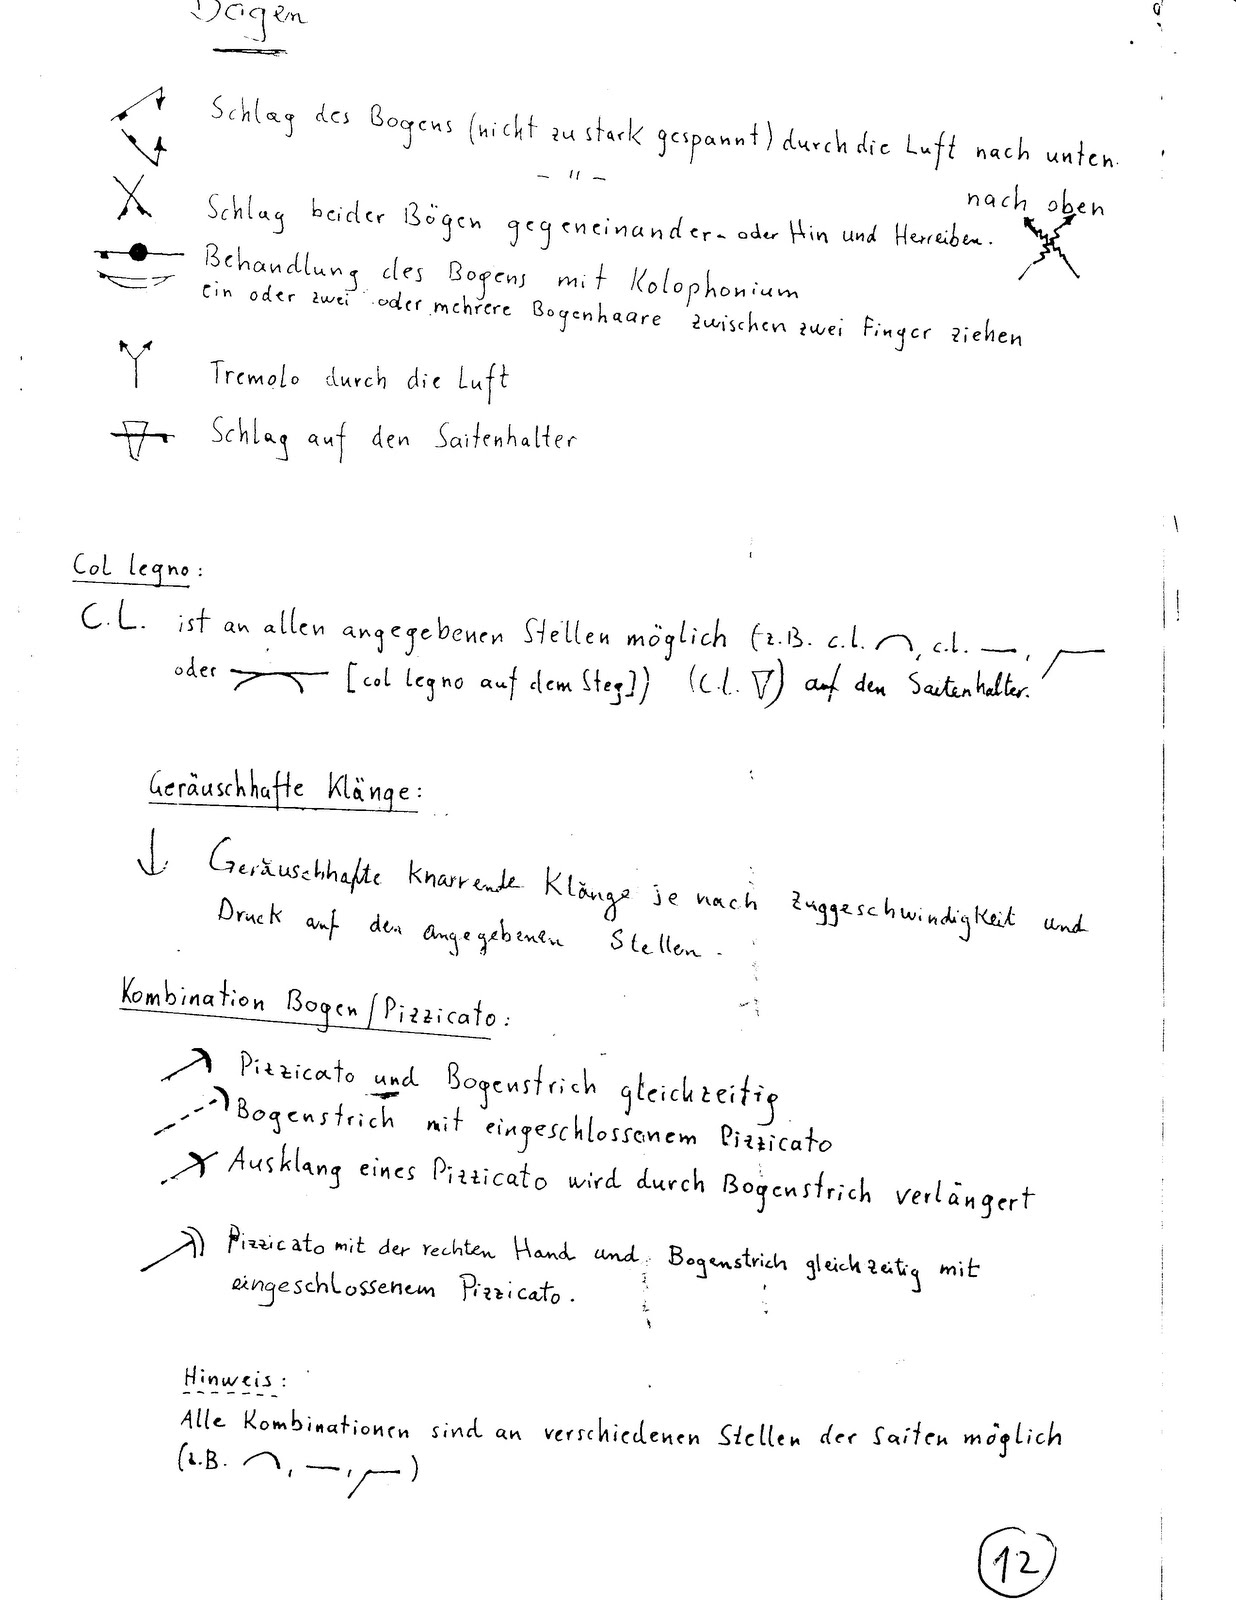 Bögen
Schlag des Bogens (nicht zu stark gespannt) durch die Luft nach unten.
– " – nach oben
Schlag beider Bögen gegeneinander – oder Hin und Herreiben.
Behandlung des Bogens mit Kolophonium
ein oder zwei oder mehrere Bogenhaare zwischen zwei Finger ziehen
Tremolo durch die Luft
Schlag auf den Saitenhalter
Col legno:
C.L. ist an allen angegebenen Stellen möglich (z.B. c.l. , c.l. ,
oder [col legno auf dem Steg]) (c.l. ) auf den Saitenhalter.
Geräuschhafte Klänge:
Geräuschhafte knarrende Klänge je nach Zuggeschwindigkeit und
Druck auf den angegebenen Stellen.
Kombination Bogen/Pizzicato:
Pizzicato und Bogenstrich gleichzeitig
Bogenstrich mit eingeschlossenem Pizzicato
Ausklang eines Pizzicato wird durch Bogenstrich verlängert
Pizzicato mit der rechten Hand und Bogenstrich gleichzeitig mit
eingeschlossenem Pizzicato.
Hinweis:
Alle Kombinationen sind an verschiedenen Stellen der Saiten möglich
(z.B. , , )
12